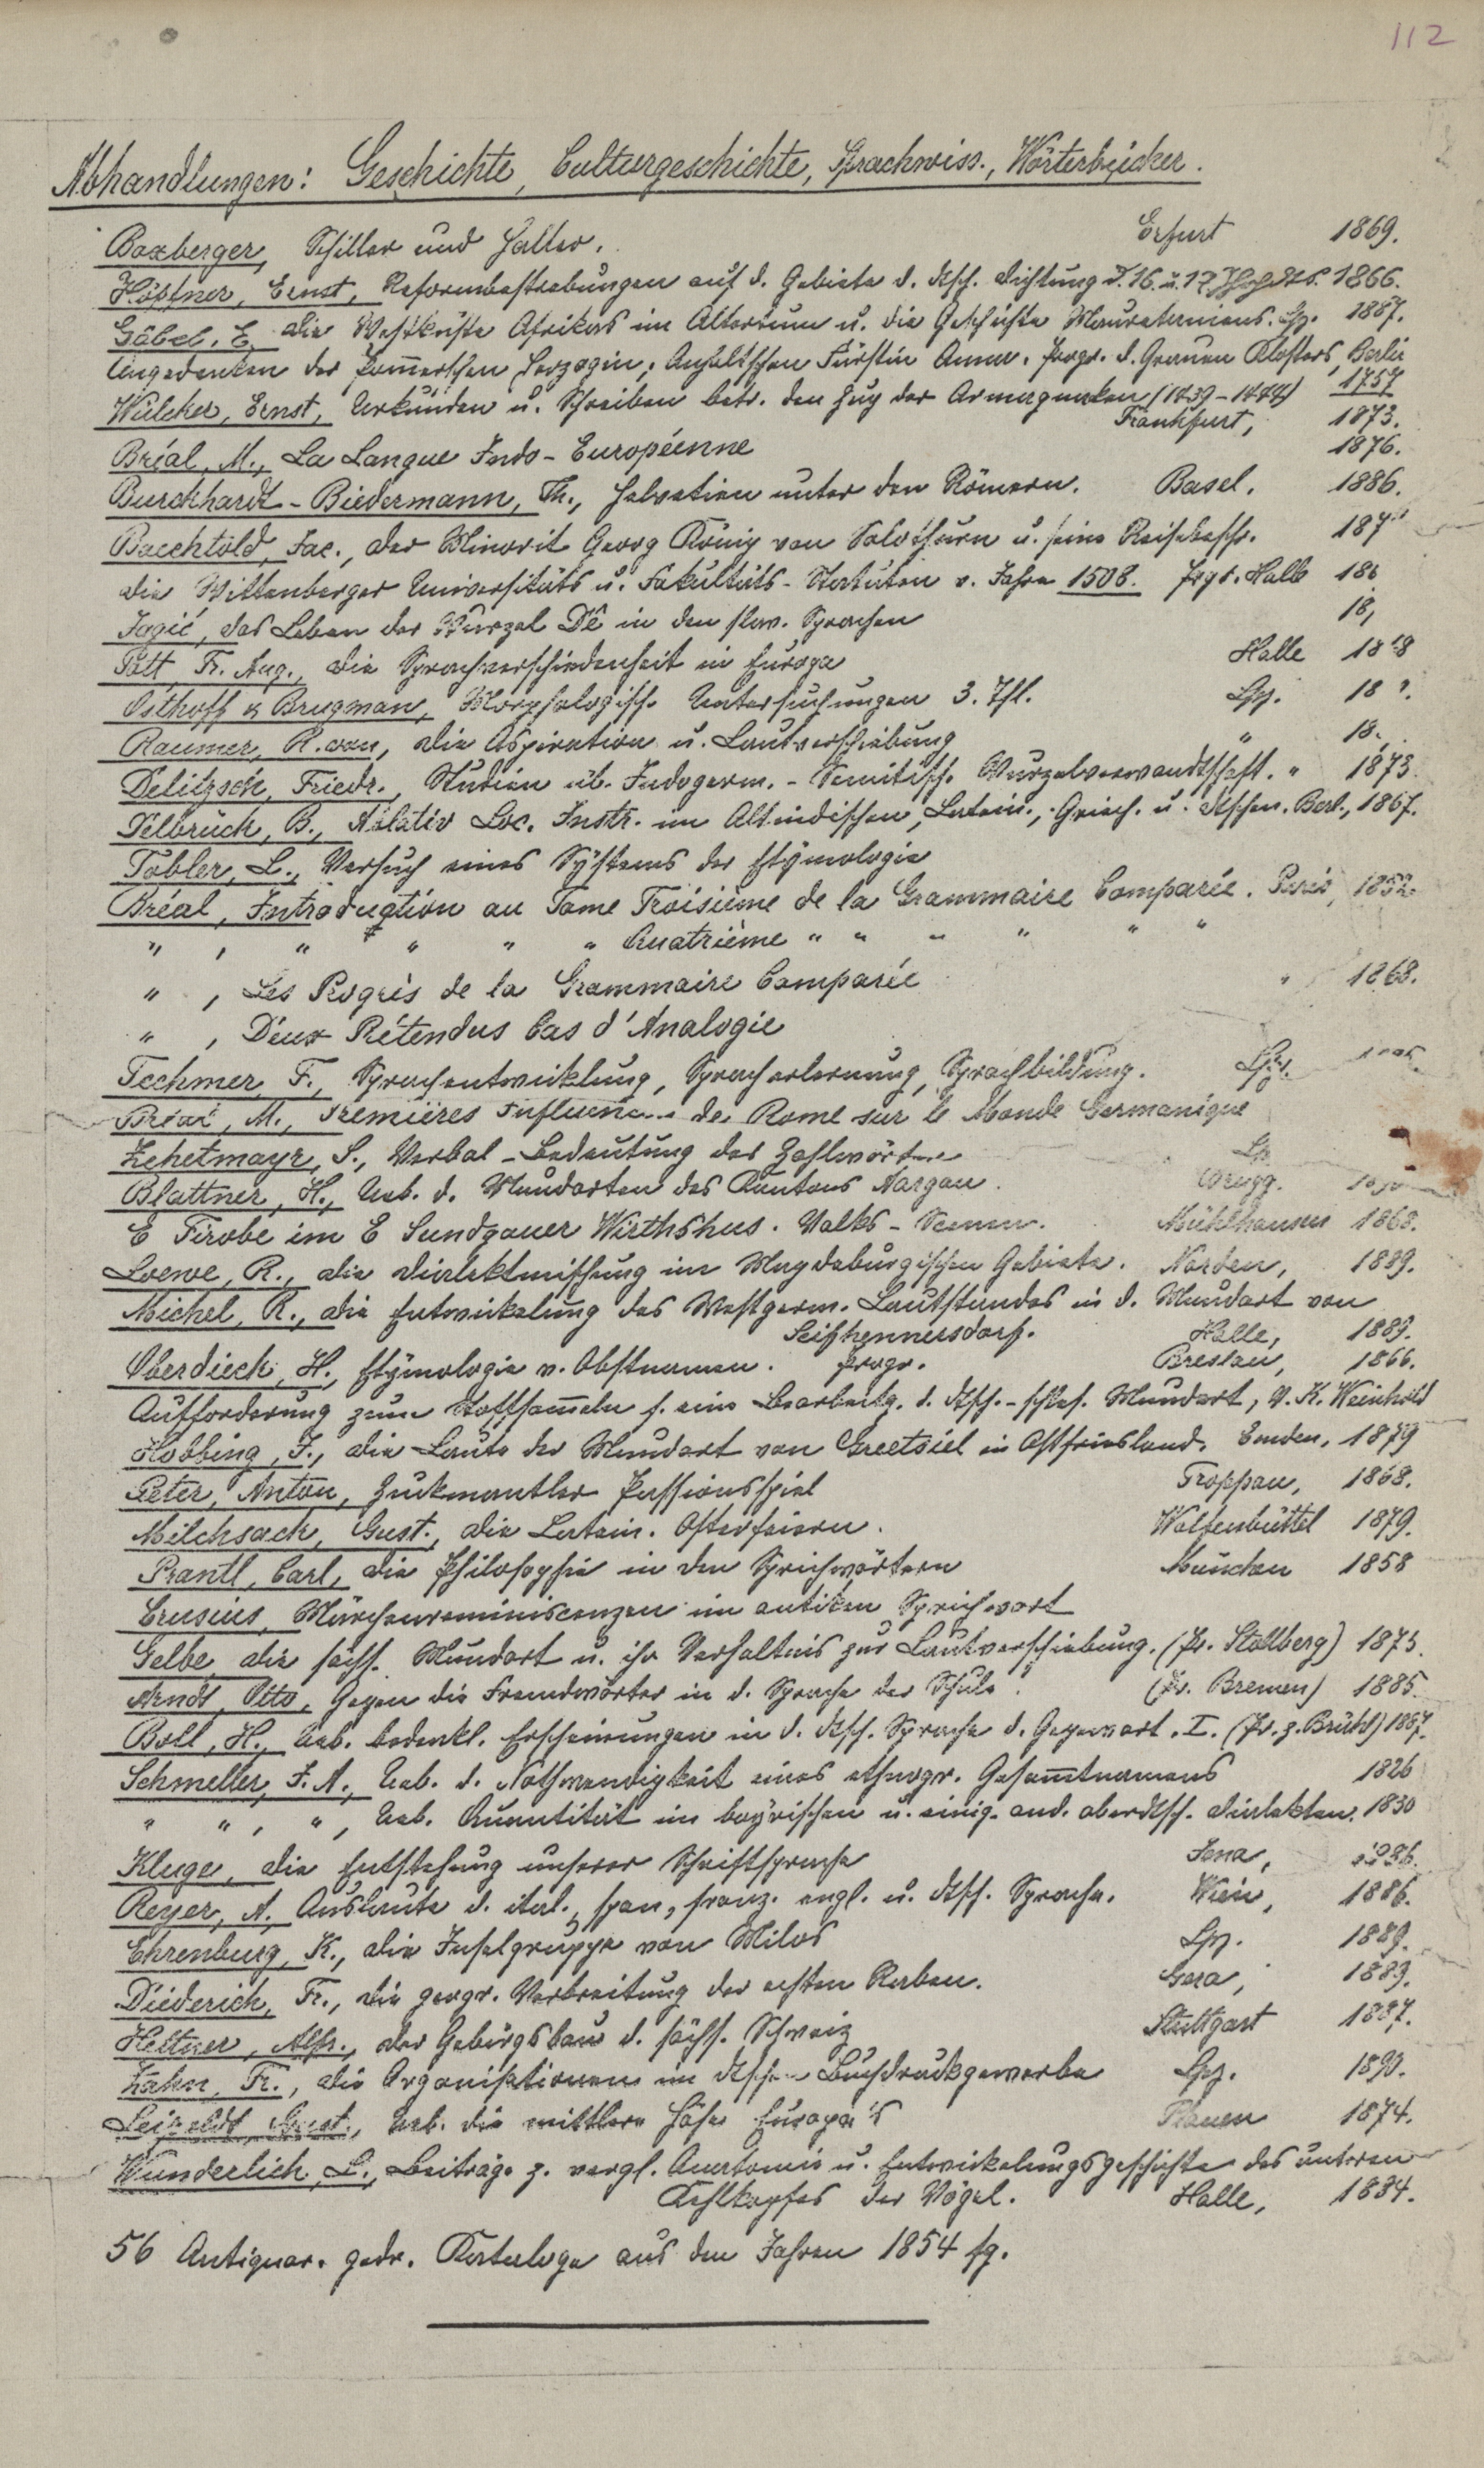 112
Abhandlungen: Geschichte, Culturgeschichte, Sprachwiss., Wörterbücher.
Boxberger, Schiller und Haller. Erfurt 1869.
Höpfner, Ernst, Reformbestrebungen auf d. Gebiete d. dtsch. Dichtung d. 16. u. 17. 1866.
Göbel, E. Die Westküste Afrikas im Altertum u. die Geschichte Mauretaniens. Lpz. 1887.
Angedenken der Pom̄erschen Herzogin, Anhaltschen Fürstin Anna. Progr. d. Grauen Klosters, Berlin
1757
Wülcker, Ernst, Urkunden u. Schreiben betr. den Zug der Armagnaken (1439-1444)
Frankfurt, 1873.
Bréal, M., La Langue Indo-Européenne 1876.
Burckhardt-Biedermann, Th., Helvetien unter den Römern. Basel. 1886.
Baechtold, Jac., Der Minorit Georg König von Solothurn u. seine Reisebeschr. 187
Die Wittenberger Universitäts u. Fakultäts-Statuten v. Jahre 1508. Progr. Halle 186
Jagić, das Leben der Wurzel Dê in den slav. Sprachen 18
Pott, Fr. Aug., Die Sprachverschiedenheit in Europa Halle 18 8
Osthoff & Brugman, Morphologische Untersuchungen 3. Thl. Lpz. 18
Raumer, R. von, Die Aspiration u. Lautverschiebung " 18
Delitzsch, Friedr., Studien üb. Indogerm.-Semitische Wurzelverwandtschaft. " 1873.
Delbrück, B., Ablativ Loc. Instr. im Altindischen, Latein., Griech. u. Dtschen. Berl., 1867.
Tobler, L., Versuch eines Systems der Etymologie
Bréal, Introduction au Tome Troisième de la Grammaire Comparée. Paris,
" , " " " " Quatrième " " " " " "
" , Les Progrès de la Grammaire Comparée " 1868.
" , Deux Prétendus Cas d'Analogie
Techmer, F., Sprachentwicklung, Spracherlernung, Sprachbildung. Lpz.
Bréal, M., Premières de Rome sur le Monde Germanique
Zehetmayr, S., Verbal-Bedeutung der Zahlwörter Lpz
Blattner, H., Ueb. d. Mundarten des Kantons Aargau. Brugg.
E Firobe im E Sundgauer Wirthshus. Volks-Scenen. Mühlhausen 1868.
Loewe, R., Die Dialektmischung im Magdeburgischen Gebiete. Norden, 1889.
Michel, R., Die Entwickelung des Westgerm. Lautstandes in d. Mundart von
Seifhennersdorf. Halle, 1889.
Oberdieck, H., Etymologie v. Obstnamen. Progr. Breslau, 1866.
Aufforderung zum Stoffsam̄eln f. eine Bearbeitg. d. dtsch.-schles. Mundart, v. K. Weinhold
Hobbing, J., Die Laute der Mundart von Greetsiel in Ostfriesland. Emden, 1879
Peter, Anton, Zuckmantler Passionsspiel Troppau, 1868.
Milchsack, Gust., Die Latein. Osterfeiern. Wolfenbüttel 1879.
Prantl, Carl, Die Philosophie in den Sprichwörtern München 1858
Crusius, Märchenreminiscenzen im antiken Sprichwort
Gelbe, Die sächs. Mundart u. ihr Verhaltnis zur Lautverschiebung. (Pr. Stollberg) 1875.
Arndt, Otto, Gegen die Fremdwörter in d. Sprache der Schule. (Pr. Bremen) 1885.
Boll, H., Ueb. bedenkl. Erscheinungen in d. dtsch. Sprache d. Gegenwart. I. (Pr. z. Brühl) 1867.
Schmeller, J. A., Ueb. d. Nothwendigkeit eines ethnogr. Gesam̄tnamens 1826
" " , " , Ueb. Quantität im bayrischen u. einig. and. oberdtsch. Dialekten. 1830
Kluge, Die Entstehung unserer Schriftsprache Jena,
Reyer, A. Auslaute d. ital., span., franz. engl. u. dtsch. Sprache. Wien, 1886.
Ehrenburg, K., Die Inselgruppe von Milos Lpz. 1889.
Diederich, Fr., Die geogr. Verbreitung der echten Raben. Gera, 1889.
Hettner, Alfr., Der Gebirgsbau d. sächs. Schweiz Stuttgart 1887.
Zahn, Fr., Die Organisationen im dtschen Buchdruckgewerbe Lpz. 1890.
Leipoldt, Gust., Ueb. die mittlere Höhe Europa's Plauen 1874.
Wunderlich, L., Beiträge z. vergl. Anatomie u. Entwickelungsgeschichte des unteren
Kehlkopfes der Vögel. Halle, 1884.
56 Antiquar. gedr. Kataloge aus den Jahren 1854 fg.